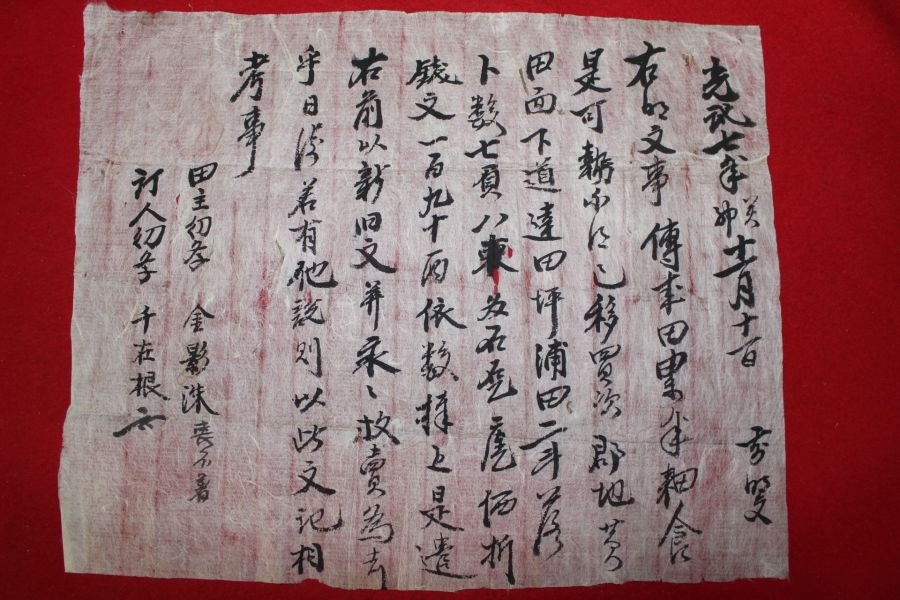 光武七年癸卯十一月十一日 前明文
右明文事傳來田累年耕食
是可 移買次郡地
田面下道達田坪浦田二斗落
卜數七負八束㐣 価折
錢文一百九十両依數捧上是遣
右前以新旧文并永〻放賣為去
乎日後若有他說則以此文記相
考事
田主幼學 金影洙喪不着
訂人幼學 千在根